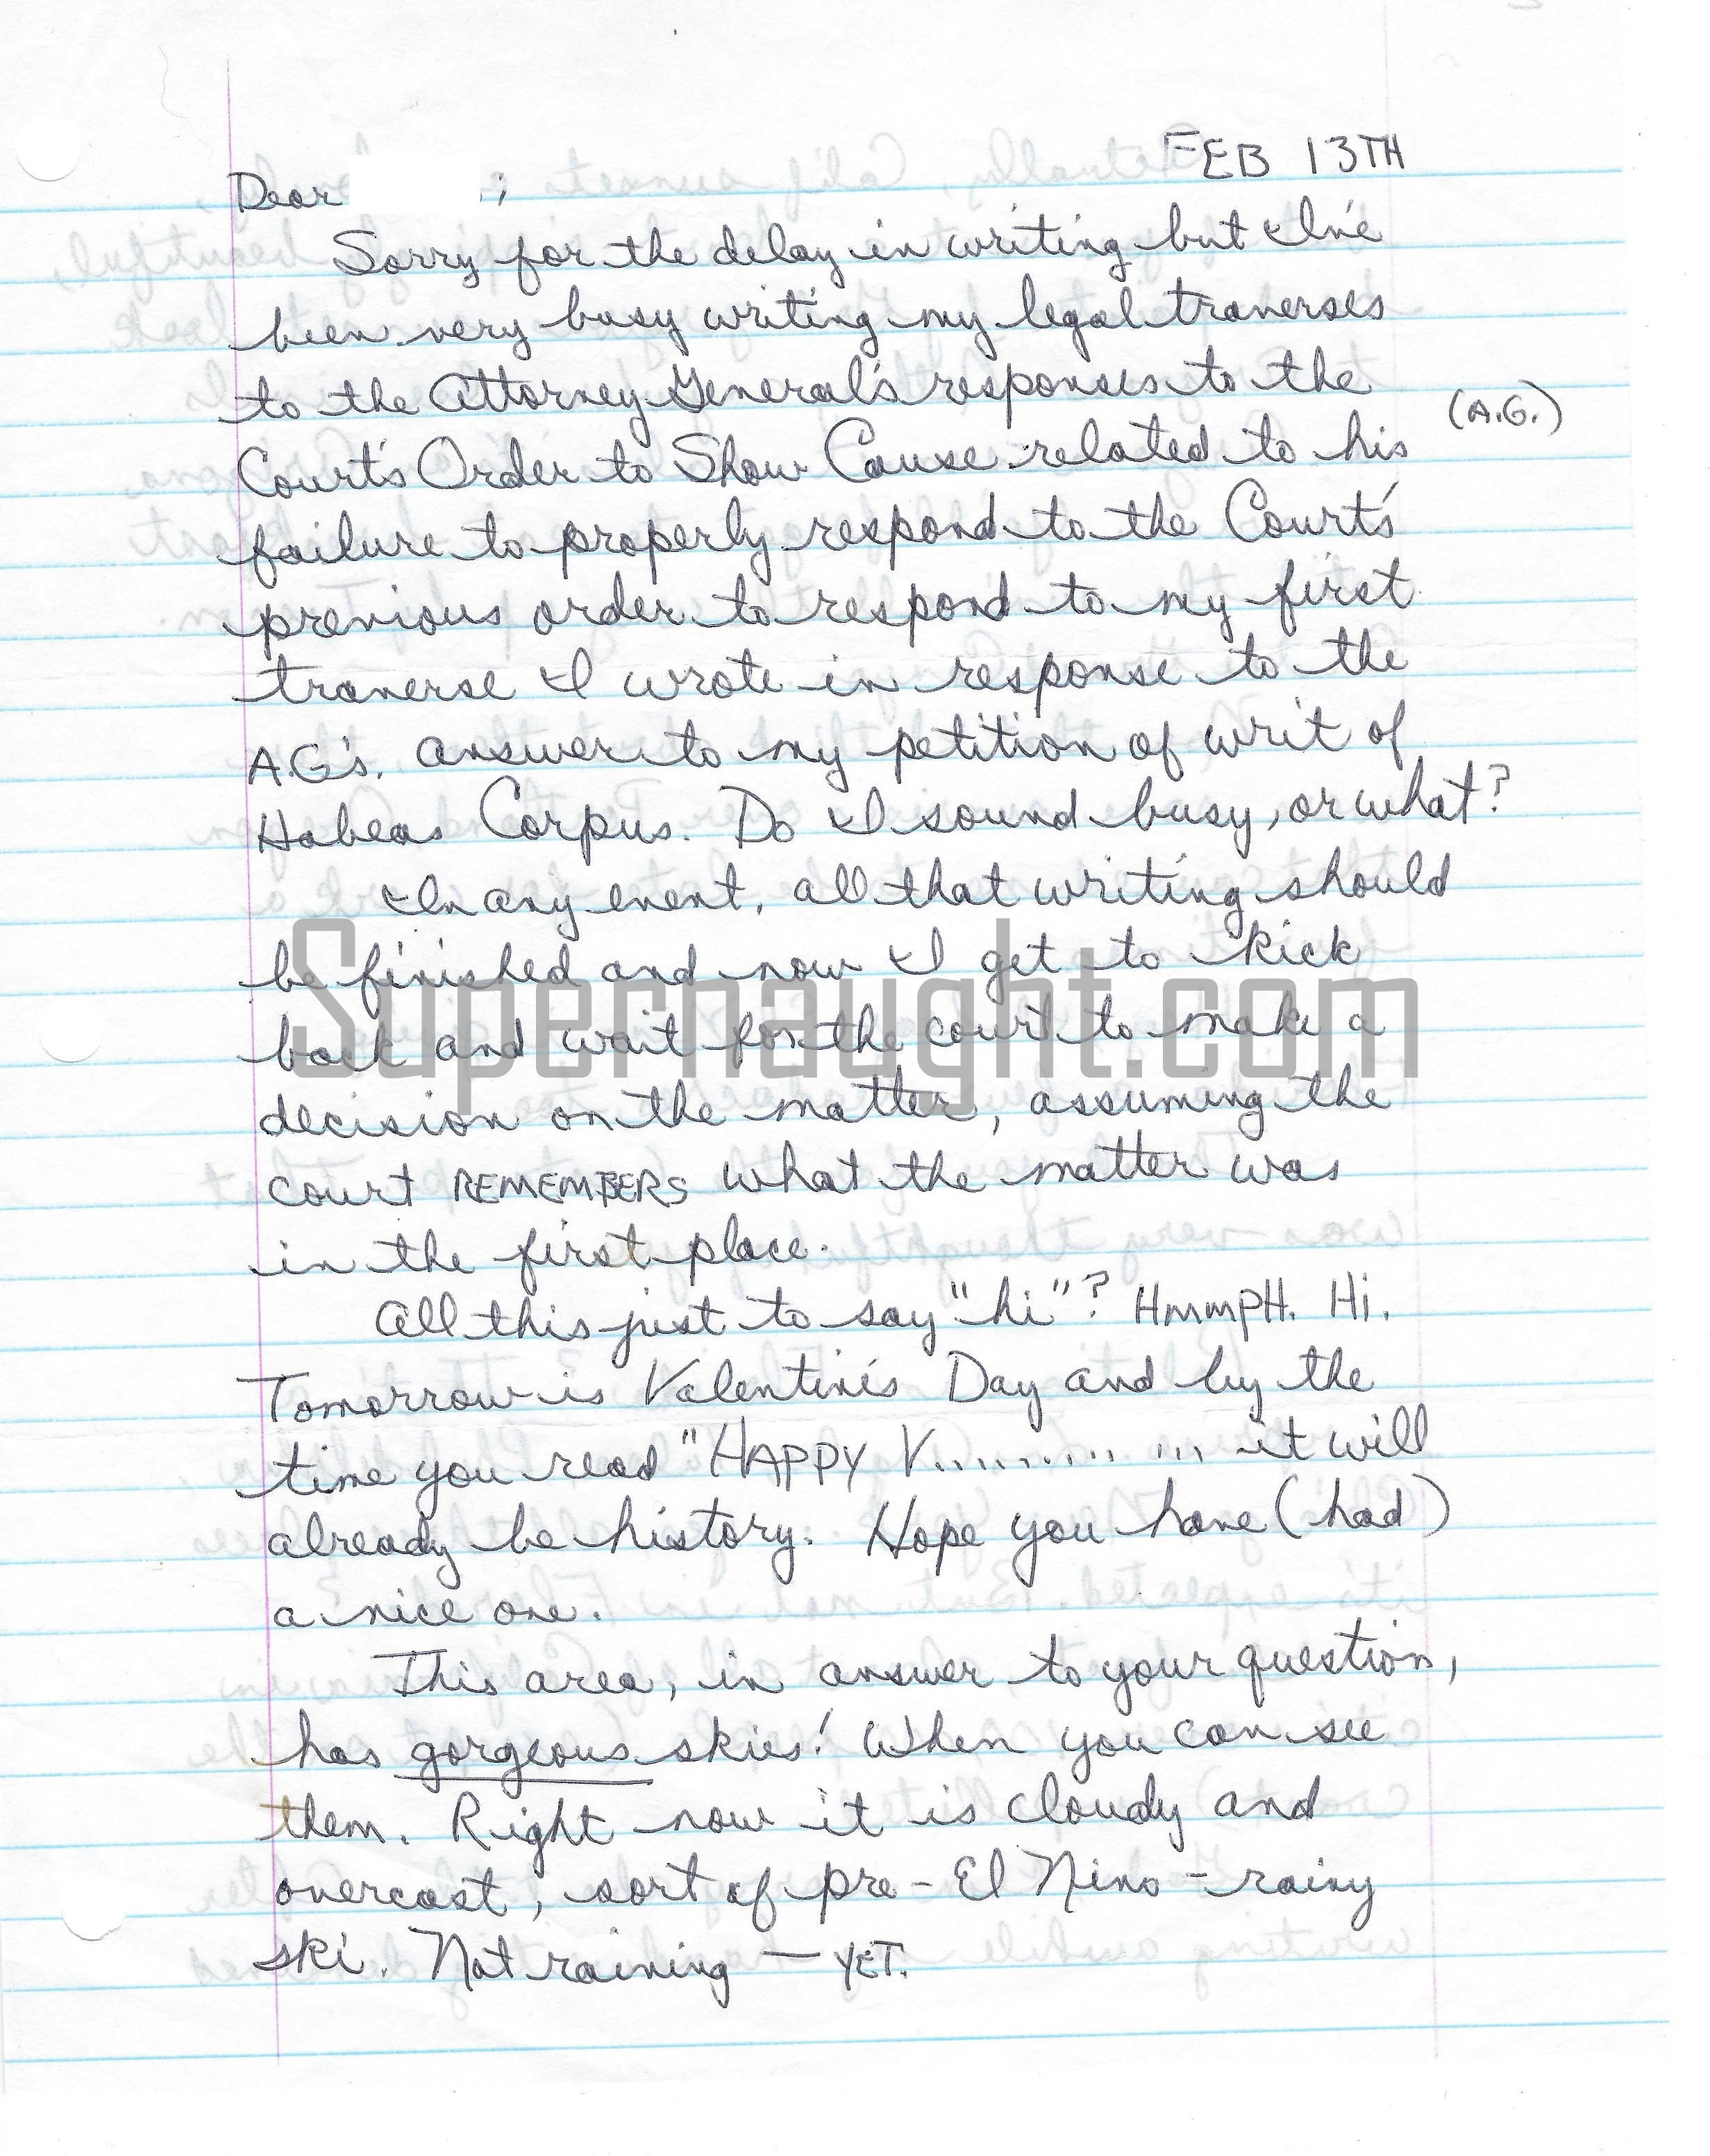 FEB 13TH
Dear ;
Sorry for the delay in writing but I've
been very busy writing my legal traverses
to the Attorney General's responses to the
(A.G.)
Court's Order to Show Cause related to his
failure to properly respond to the Court's
previous order to respond to my first
traverse I wrote in response to the
A.G's. answer to my petition of writ of
Habeas Corpus. Do I sound busy, or what?
In any event, all that writing should
be finished and now I get to kick
back and wait for the court to make a
Supernaught.com
decision on the matter, assuming the
court REMEMBERS what the matter was
in the first place.
All this just to say "hi"? HMMPH. Hi.
Tomorrow is Valentine's Day and by the
time you read "HAPPY V............. it will
already be history. Hope you have (had)
a nice one.
This area, in answer to your question,
has gorgeous skies! When you can see
them. Right now it is cloudy and
overcast, sort of pre-El Nino-rainy
ski. Not raining — YET.